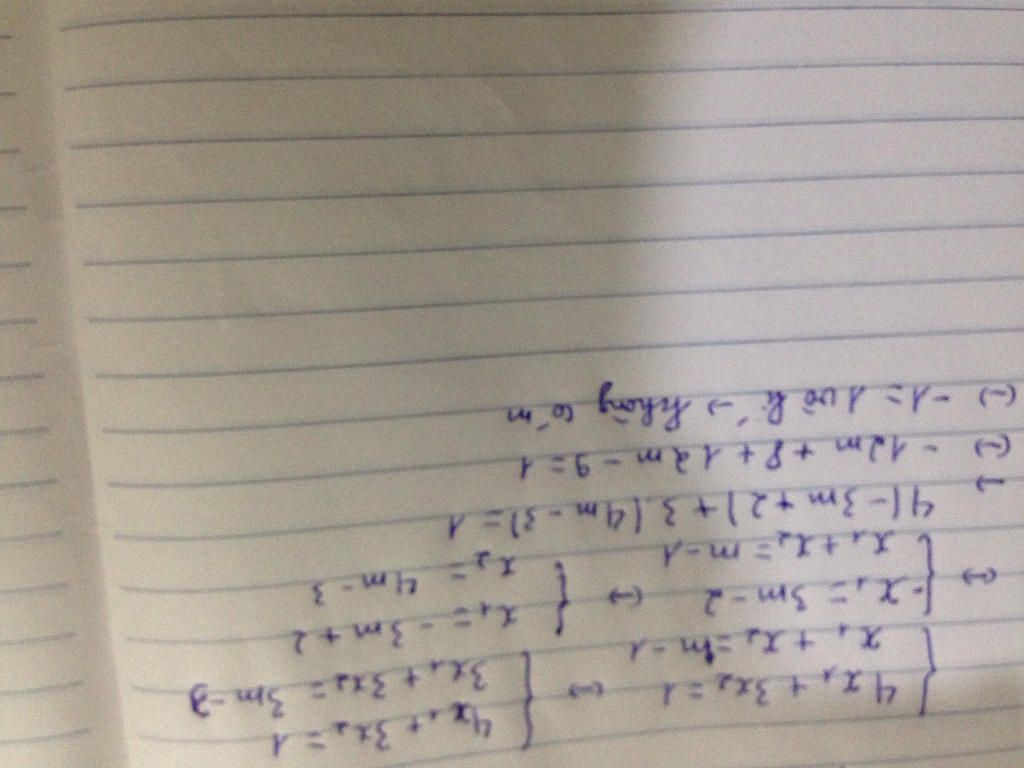 { 4x₁ + 3x₂ = 1 ↔ { 4x₁ + 3x₂ = 1
x₁ + x₂ = m - 1 3x₁ + 3x₂ = 3m - 3
↔ { -x₁ = 3m - 2 ↔ { x₁ = -3m + 2
x₁ + x₂ = m - 1 x₂ = 4m - 3
→ 4(-3m + 2) + 3.(4m - 3) = 1
(-) - 12m + 8 + 12m - 9 = 1
(-) -1 = 1 vô lí → không có m